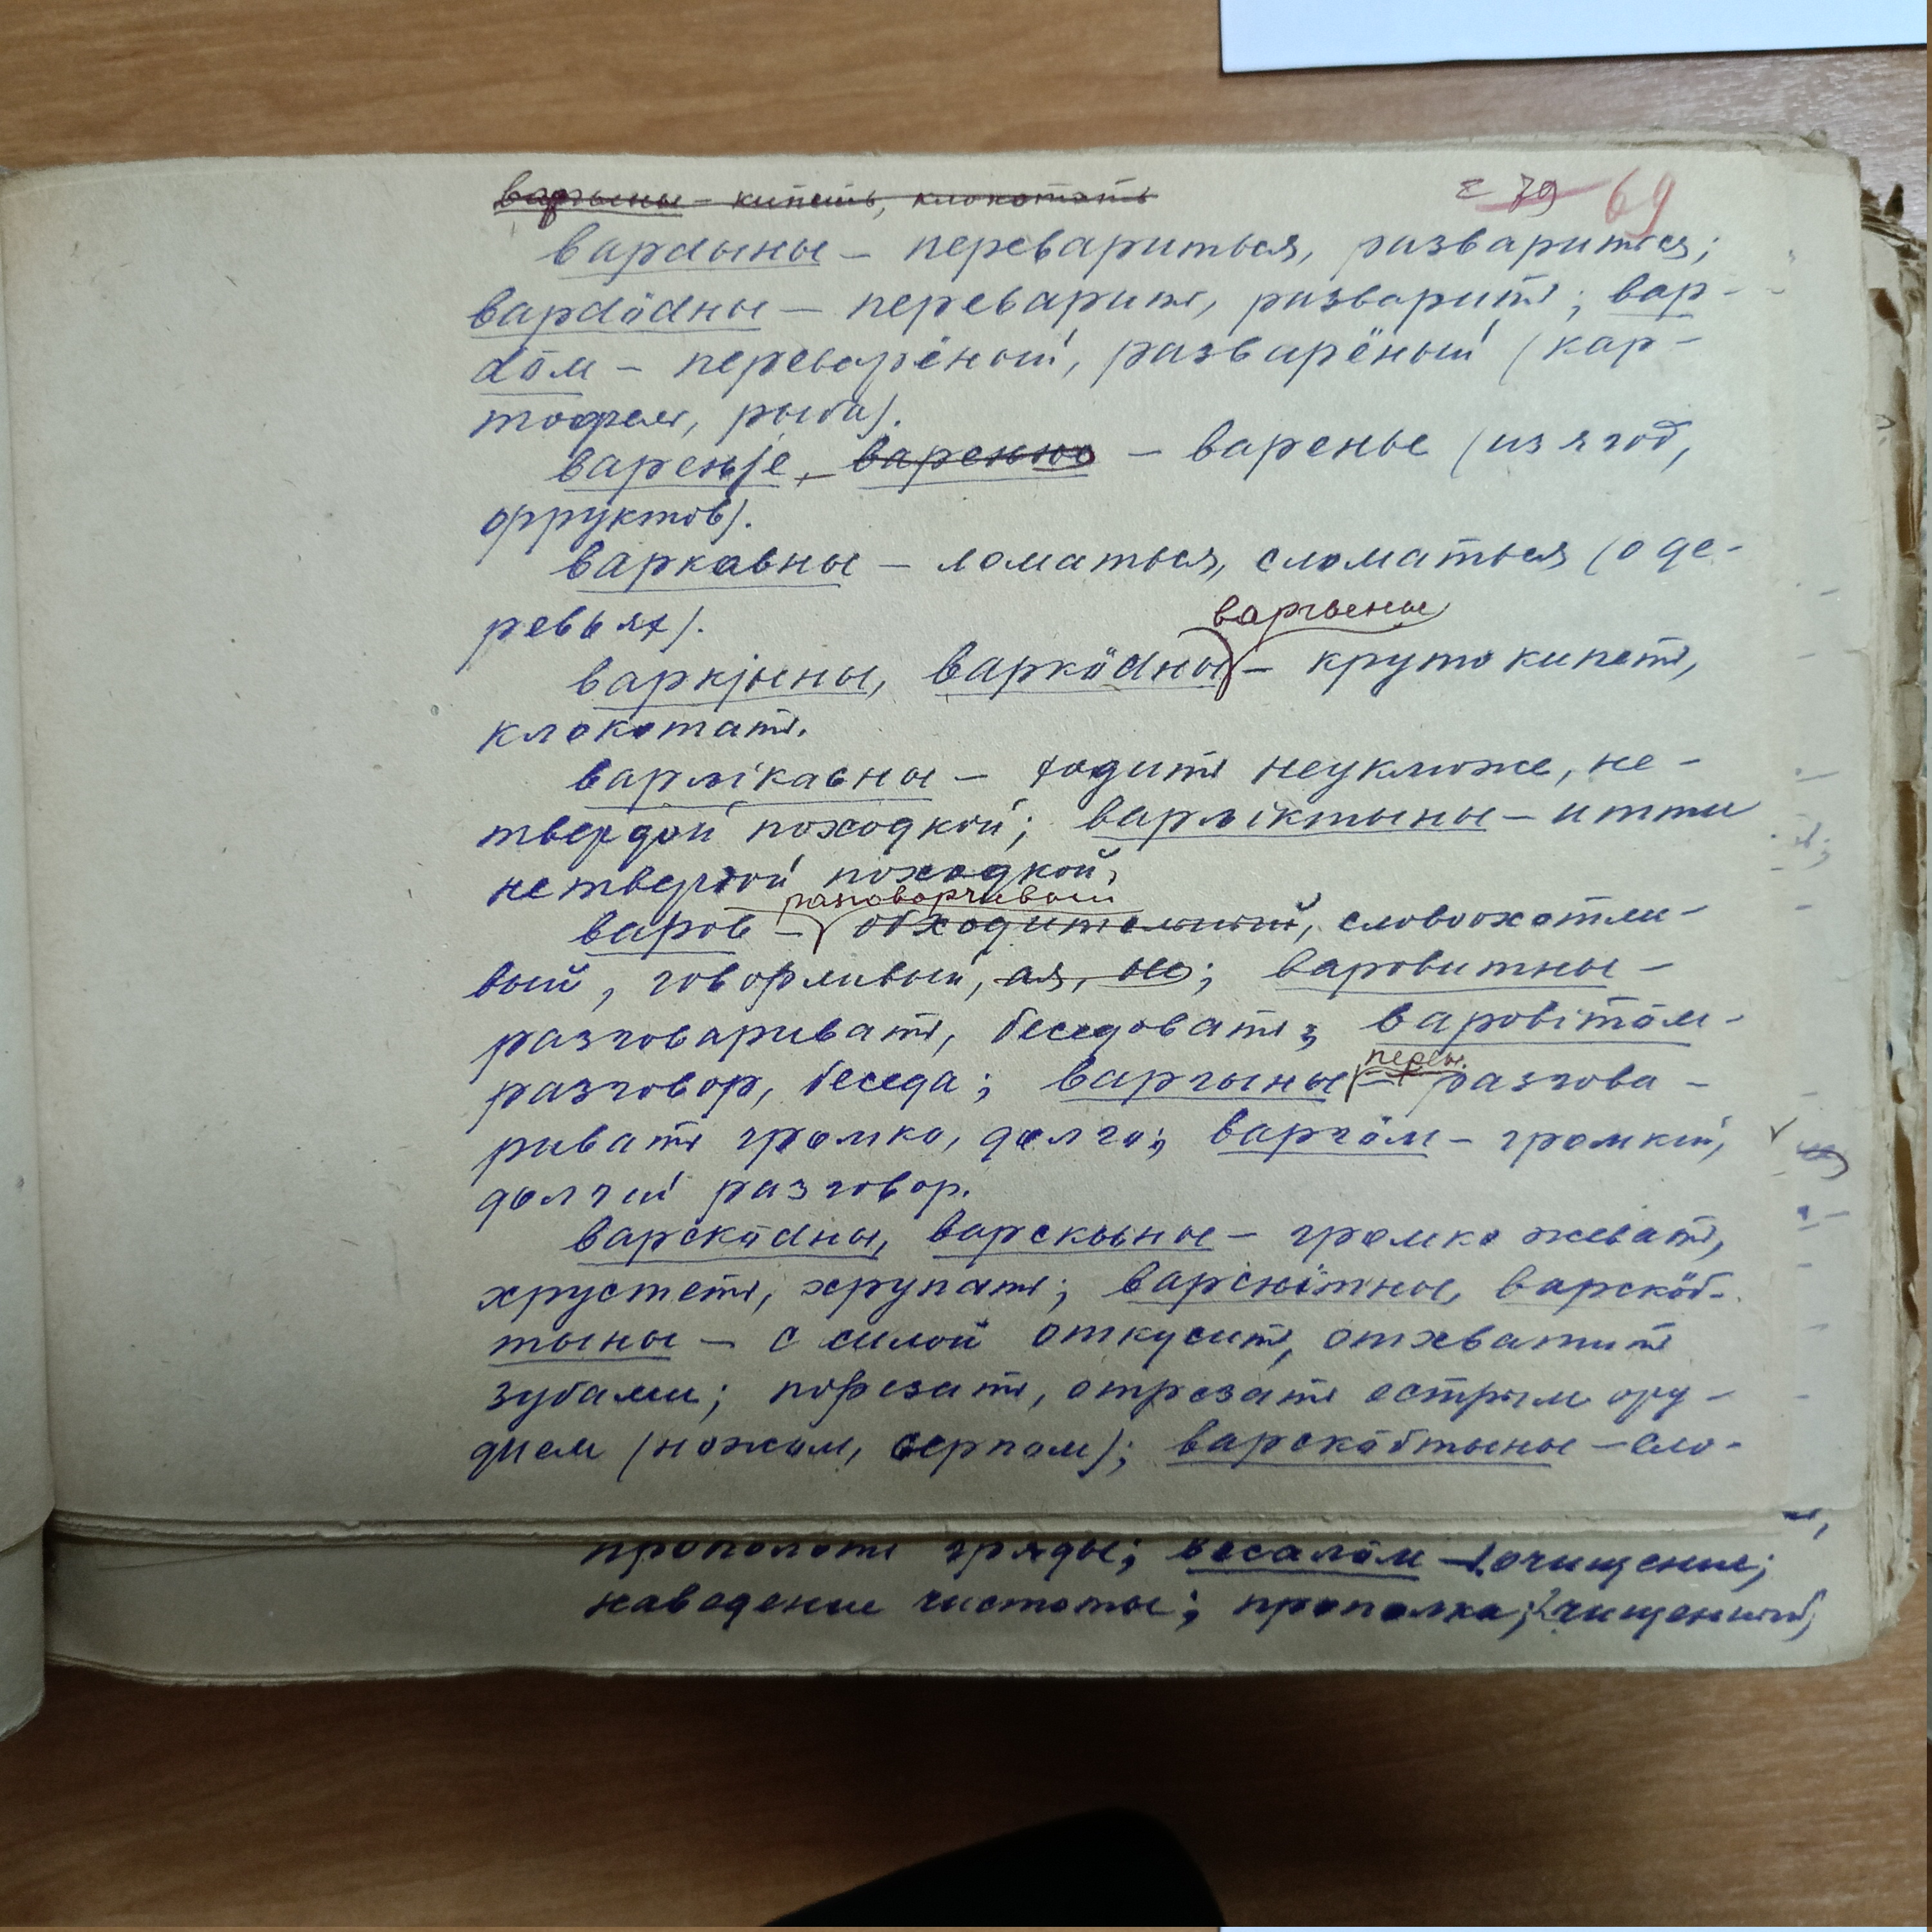 варгыны - кипеть, клокотать
79 69
варԁыны – перевариться, развариться;
варԁӧԁны – переварить, разварить; вар-
ԁӧм – переварёный, разварёный (кар-
тофель, рыба).
вареньје, варенньо – варенье (из ягод,
фруктов).
варкавны – ломаться, сломаться (о де-
ревьях).
варгыны
варкјыны, варкӧԁны – круто кипеть,
клокотать.
варлікавны – ходить неуклюже, не-
твердой походкой; варліктыны – итти
нетвердой походкой.
разговорчивый
варов – обходительный, словоохотли-
вый, говорливый, ая, ое; варовитны –
разговаривать, беседовать; варовітӧм –
разговор, беседа; варгыны – перен. разгова-
ривать громко, долго; варгӧм – громкий,
долгий разговор.
варскӧԁны, варскыны – громко жевать,
хрустеть, хрупать; варскӧб-
тыны – с силой откусить, отхватить
зубами; порезать, отрезать острым ору-
дием (ножом, серпом); варскӧбтыны – сло-
прополоть гряды; весалӧм – очищение;
наведение чистоты; прополка; чищенный,